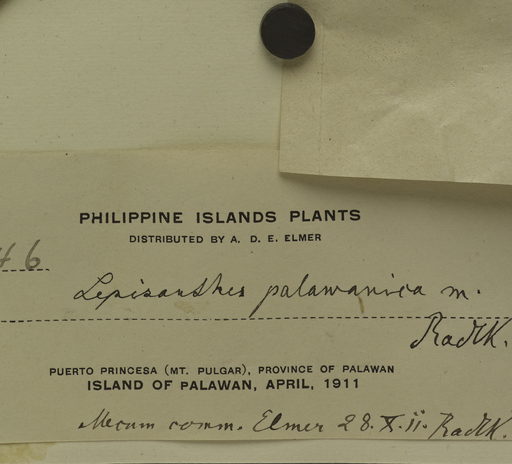 PHILIPPINE ISLANDS PLANTS
DISTRIBUTED BY A. D. E. ELMER
46
Lepisanthes palawanica m.
Radlk.
PUERTO PRINCESA (MT. PULGAR), PROVINCE OF PALAWAN
ISLAND OF PALAWAN, APRIL, 1911
Mecum comm. Elmer 28.X.11. Radlk.